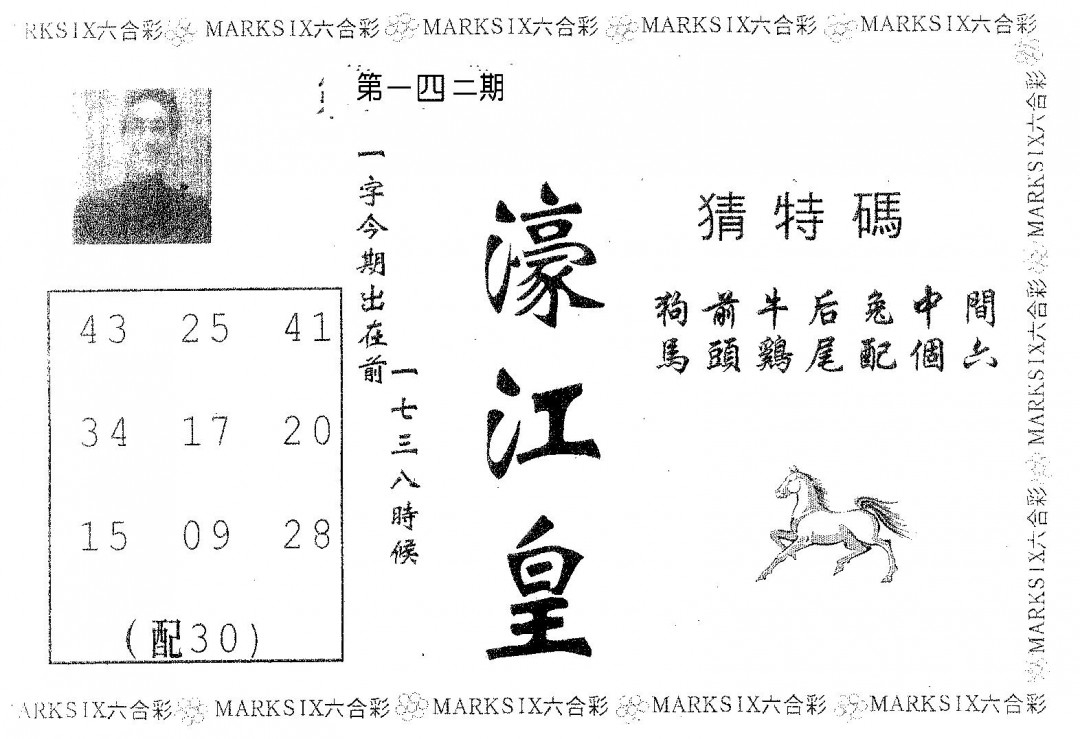 RKSIX六合彩 MARKSIX六合彩 MARKSIX六合彩 MARKSIX六合彩 MARKSIX六合彩
第一四二期
一字今期出在前
一七三八時候
濠江皇
猜特碼
狗前牛后兔中間
馬頭鷄尾配個六
43 25 41
34 17 20
15 09 28
(配30)
MARKSIX六合彩 MARKSIX六合彩 MARKSIX六合彩
ARKSIX六合彩 MARKSIX六合彩 MARKSIX六合彩 MARKSIX六合彩 MARKSIX六合彩